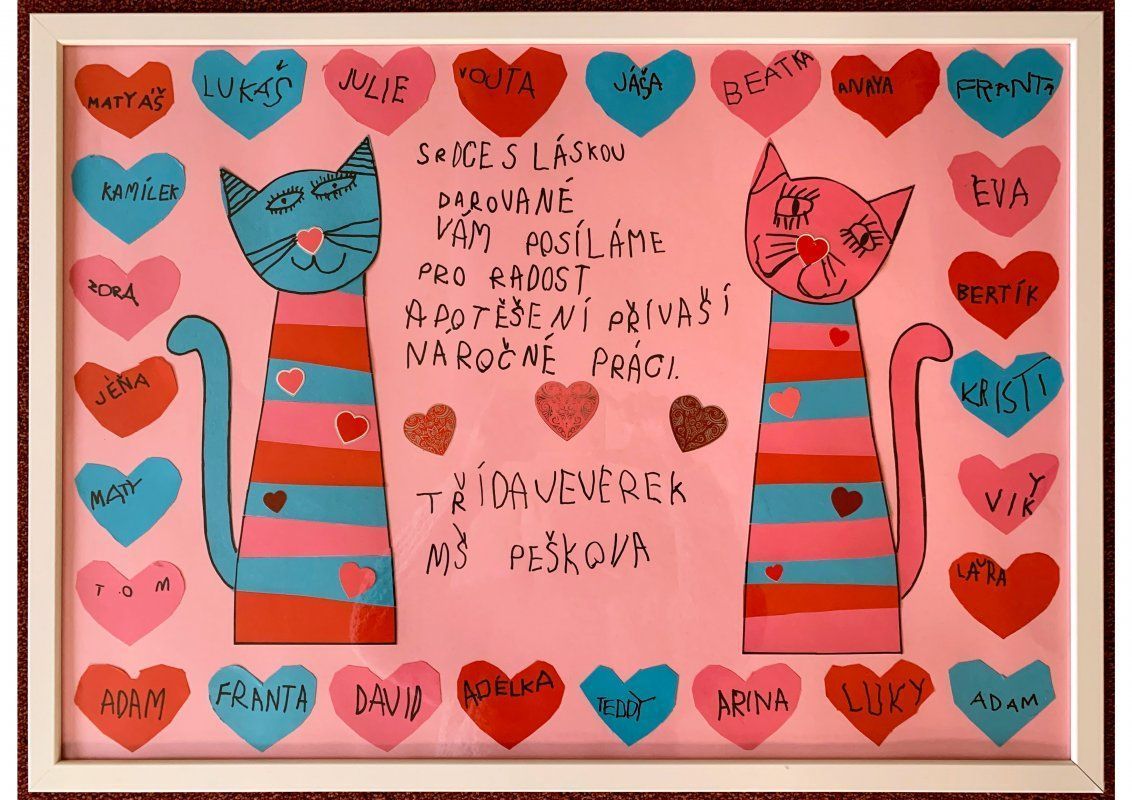 MATYÁŠ
LUKÁŠ
JULIE
VOJTA
JÁŠA
BEATKA
ANAYA
FRANTA
KAMÍLEK
ZORA
JÉŇA
MATY
TOM
SRDCE S LÁSKOU
DAROVANÉ
VÁM POSÍLÁME
PRO RADOST
A POTĚŠENÍ PŘI VAŠÍ
NÁROČNÉ PRÁCI.
TŘÍDA VEVEREK
MŠ PEŠKOVA
EVA
BERTÍK
KRISTI
VIKY
LAURA
ADAM
FRANTA
DAVID
ADÉLKA
TEDDY
ARINA
LUKY
ADAM